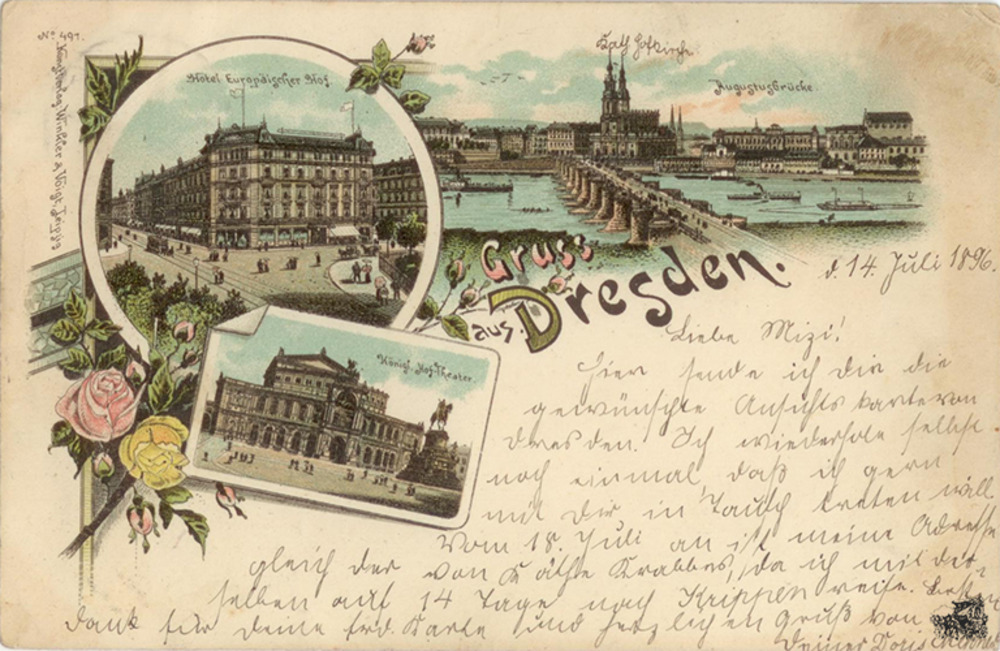 No 491.
Kunstverlag Winkler & Voigt, Leipzig
Hotel Europäischer Hof.
Kath Hofkirche
Augustusbrücke.
Gruss
aus Dresden.
Königl. Hof-Theater.
d. 14. Juli 1896.
Liebe Mizi!
Hier sende ich dir die
gewünschte Ansichtskarte von
Dresden. Ich wiederhole selbst
noch einmal, daß ich gern
mit Dir in Tausch treten will.
Vom 18. Juli an ist meine Adresse
gleich der von Käthe Krabbes, da ich mit der
selben auf 14 Tage nach Krippen reise. Besten
Dank für Deine frd. Karte und herzlichen Gruß von
Deiner Doris